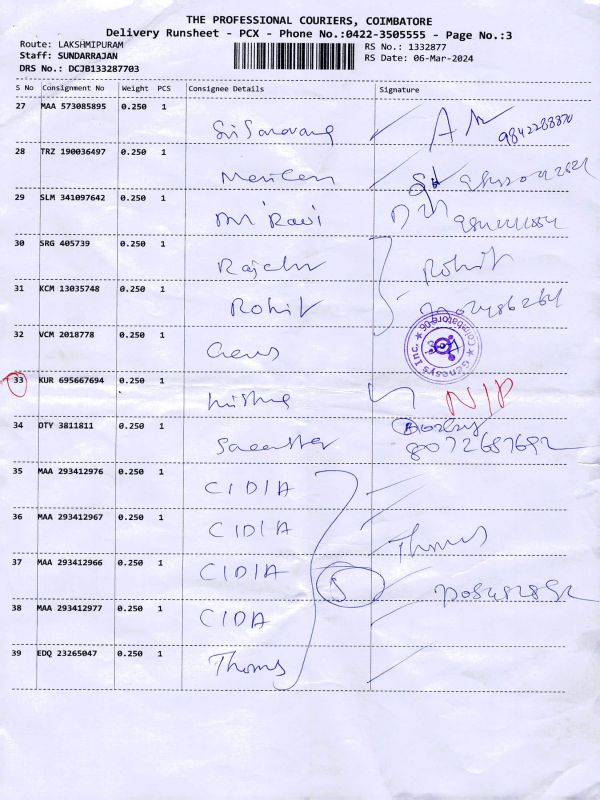 THE PROFESSIONAL COURIERS, COIMBATORE
Delivery Runsheet - PCX - Phone No.:0422-3505555 - Page No.:3
Route: LAKSHMIPURAM RS No.: 1332877
Staff: SUNDARRAJAN RS Date: 06-Mar-2024
DRS No.: DCJB133287703
S No Consignment No Weight PCS Consignee Details Signature
27 MAA 573085895 0.250 1
9842288870
28 TRZ 190036497 0.250 1
29 SLM 341097642 0.250 1 Mr Ravi
30 SRG 405739 0.250 1 Rohit
31 KCM 13035748 0.250 1 Rohit
32 VCM 2018778 0.250 1
Genesys Inc. ★ Coimbatore-06 ★
33 KUR 695667694 0.250 1 N/P
34 DTY 3811811 0.250 1
8072687692
35 MAA 293412976 0.250 1 CIDIA
36 MAA 293412967 0.250 1 CIDIA
Thomas
37 MAA 293412966 0.250 1 CIDIA
5
38 MAA 293412977 0.250 1 CIDA
39 EDQ 23265047 0.250 1 Thomas